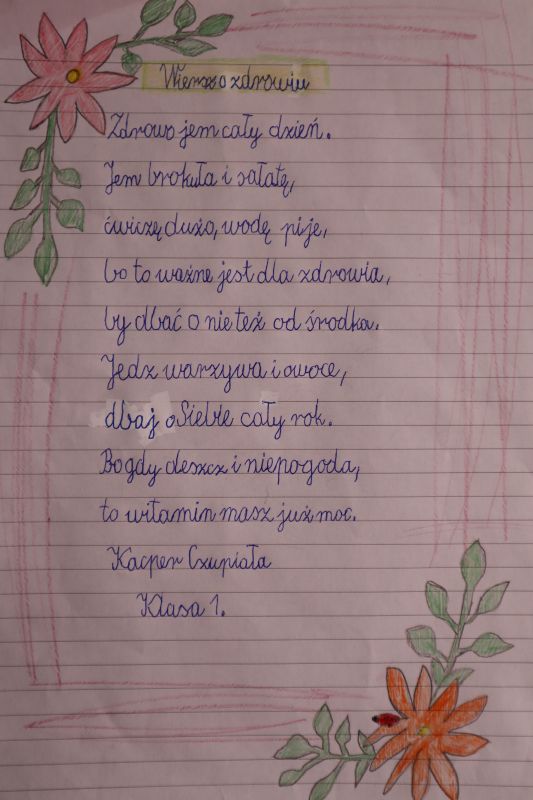 Wiersz o zdrowiu
Zdrowo jem cały dzień.
Jem brokuła i sałatę,
ćwiczę dużo, wodę piję,
bo to ważne jest dla zdrowia,
by dbać o nie też od środka.
Jedz warzywa i owoce,
dbaj o Siebie cały rok.
Bo gdy deszcz i niepogoda,
to witamin masz już moc.
Kacper Czupiała
Klasa 1.